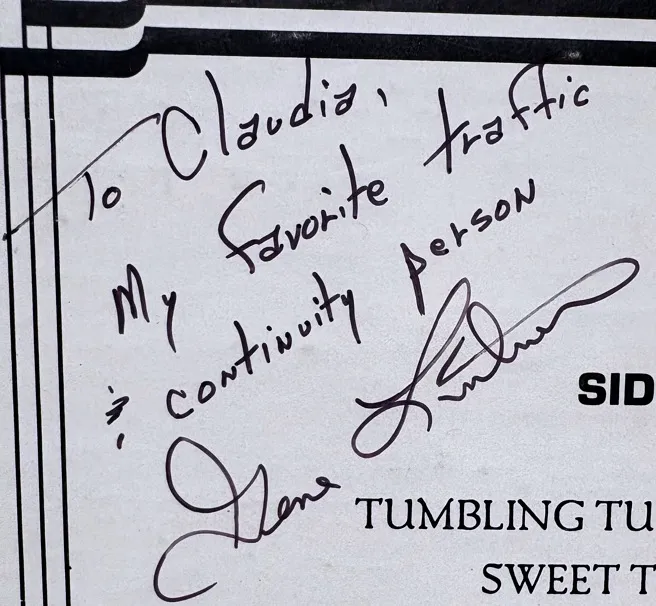 To Claudia,
My favorite traffic
& continuity person
Gene
SID
TUMBLING TU
SWEET T